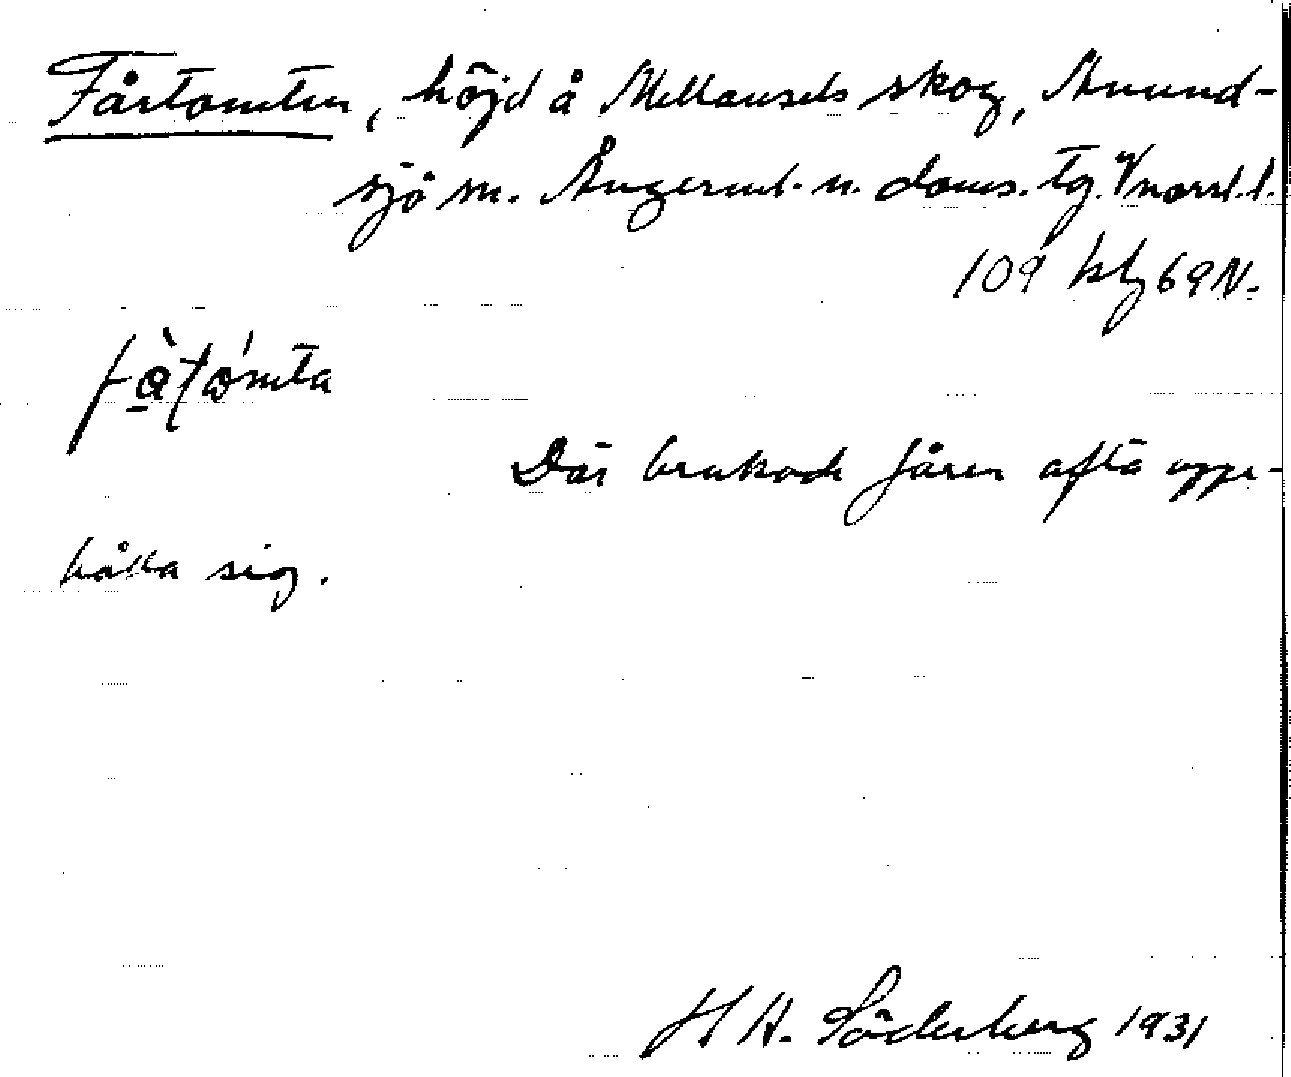 Fårtomten, höjd å Mellansels skog, Anund-
sjö sn. Ångerml. n. doms. tg. V/norrl. l.
109 kbl 69 N.
Där brukade fåren ofta uppe-
hålla sig.
H A. Söderberg 1931